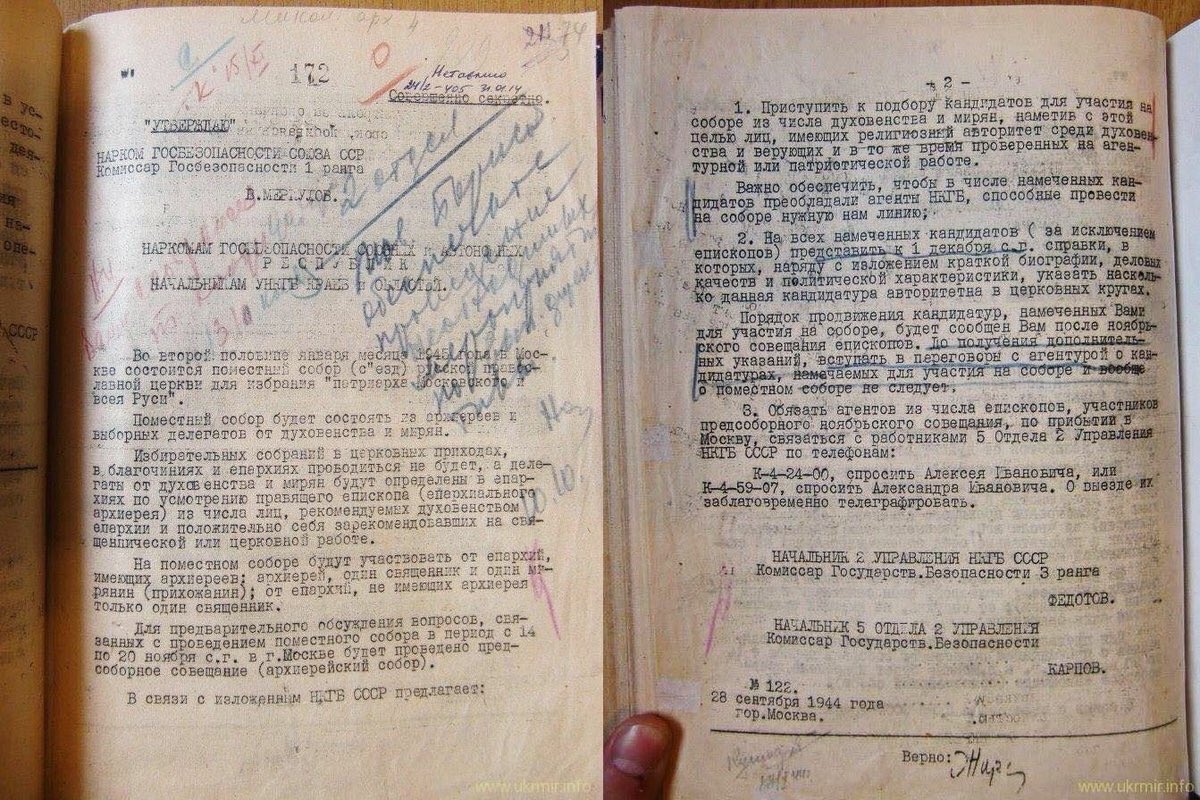 172
Совершенно секретно.
"УТВЕРЖДАЮ"
НАРКОМ ГОСБЕЗОПАСНОСТИ СОЮЗА ССР
Комиссар Госбезопасности 1 ранга
В.МЕРКУЛОВ.
2 отдел
НАРКОМАМ ГОСБЕЗОПАСНОСТИ СОЮЗНЫХ и АВТОНОМНЫХ
РЕСПУБЛИК
НАЧАЛЬНИКАМ УНКГБ КРАЕВ и ОБЛАСТЕЙ.
Во второй половине января месяца 1945 года в Мос-
кве состоится поместный собор (с"езд) русской право-
лавной церкви для избрания "патриарха Московского и
всея Руси".
Поместный собор будет состоять из архиереев и
выборных делегатов от духовенства и мирян.
Избирательных собраний в церковных приходах,
в благочиниях и епархиях проводиться не будет, а деле-
гаты от духовенства и мирян будут определены в епар-
хиях по усмотрению правящего епископа (епархиального
архиерея) из числа лиц, рекомендуемых духовенством
епархии и положительно себя зарекомендовавших на свя-
щеннической или церковной работе.
На поместном соборе будут участвовать от епархий,
имеющих архиереев: архиерей, один священник и один ми-
рянин (прихожанин); от епархий, не имеющих архиерея
только один священник.
Для предварительного обсуждения вопросов, свя-
занных с проведением поместного собора в период с 14
по 20 ноября с.г. в г.Москве будет проведено пред-
соборное совещание (архиерейский собор).
В связи с изложенным НКГБ СССР предлагает:
www.ukrmir.info
- 2 -
1. Приступить к подбору кандидатов для участия на
соборе из числа духовенства и мирян, наметив с этой
целью лиц, имеющих религиозный авторитет среди духовен-
ства и верующих и в то же время проверенных на аген-
турной или патриотической работе.
Важно обеспечить, чтобы в числе намеченных кан-
дидатов преобладали агенты НКГБ, способные провести
на соборе нужную нам линию;
2. На всех намеченных кандидатов ( за исключением
епископов) представить к 1 декабря с.г. справки, в
которых, наряду с изложением краткой биографии, деловых
качеств и политической характеристики, указать насколь-
ко данная кандидатура авторитетна в церковных кругах.
Порядок продвижения кандидатур, намеченных Вами
для участия на соборе, будет сообщен Вам после ноябрь-
ского совещания епископов. До получения дополнитель-
ных указаний, вступать в переговоры с агентурой о кан-
дидатурах, намечаемых для участия на соборе и вообще
о поместном соборе не следует.
3. Обязать агентов из числа епископов, участников
предсоборного ноябрьского совещания, по прибытии в
Москву, связаться с работниками 5 Отдела 2 Управления
НКГБ СССР по телефонам:
К-4-24-00, спросить Алексея Ивановича, или
К-4-59-07, спросить Александра Ивановича. О выезде их
заблаговременно телеграфировать.
НАЧАЛЬНИК 2 УПРАВЛЕНИЯ НКГБ СССР
Комиссар Государств.Безопасности 3 ранга
ФЕДОТОВ.
НАЧАЛЬНИК 5 ОТДЕЛА 2 УПРАВЛЕНИЯ
Комиссар Государств.Безопасности
КАРПОВ.
№ 122.
28 сентября 1944 года
гор.Москва.
Верно:
www.ukrmir.info